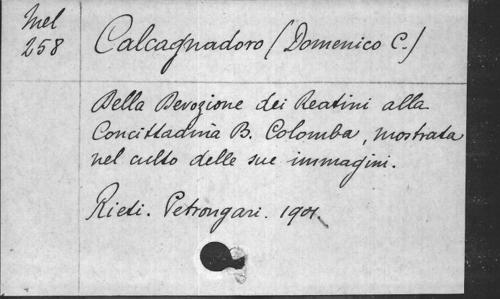 Mel
258
Calcagnadoro (Domenico C.)
Della Devozione dei Reatini alla
Concittadina B. Colomba, mostrata
nel culto delle sue immagini.
Rieti. Petrongari. 1901.